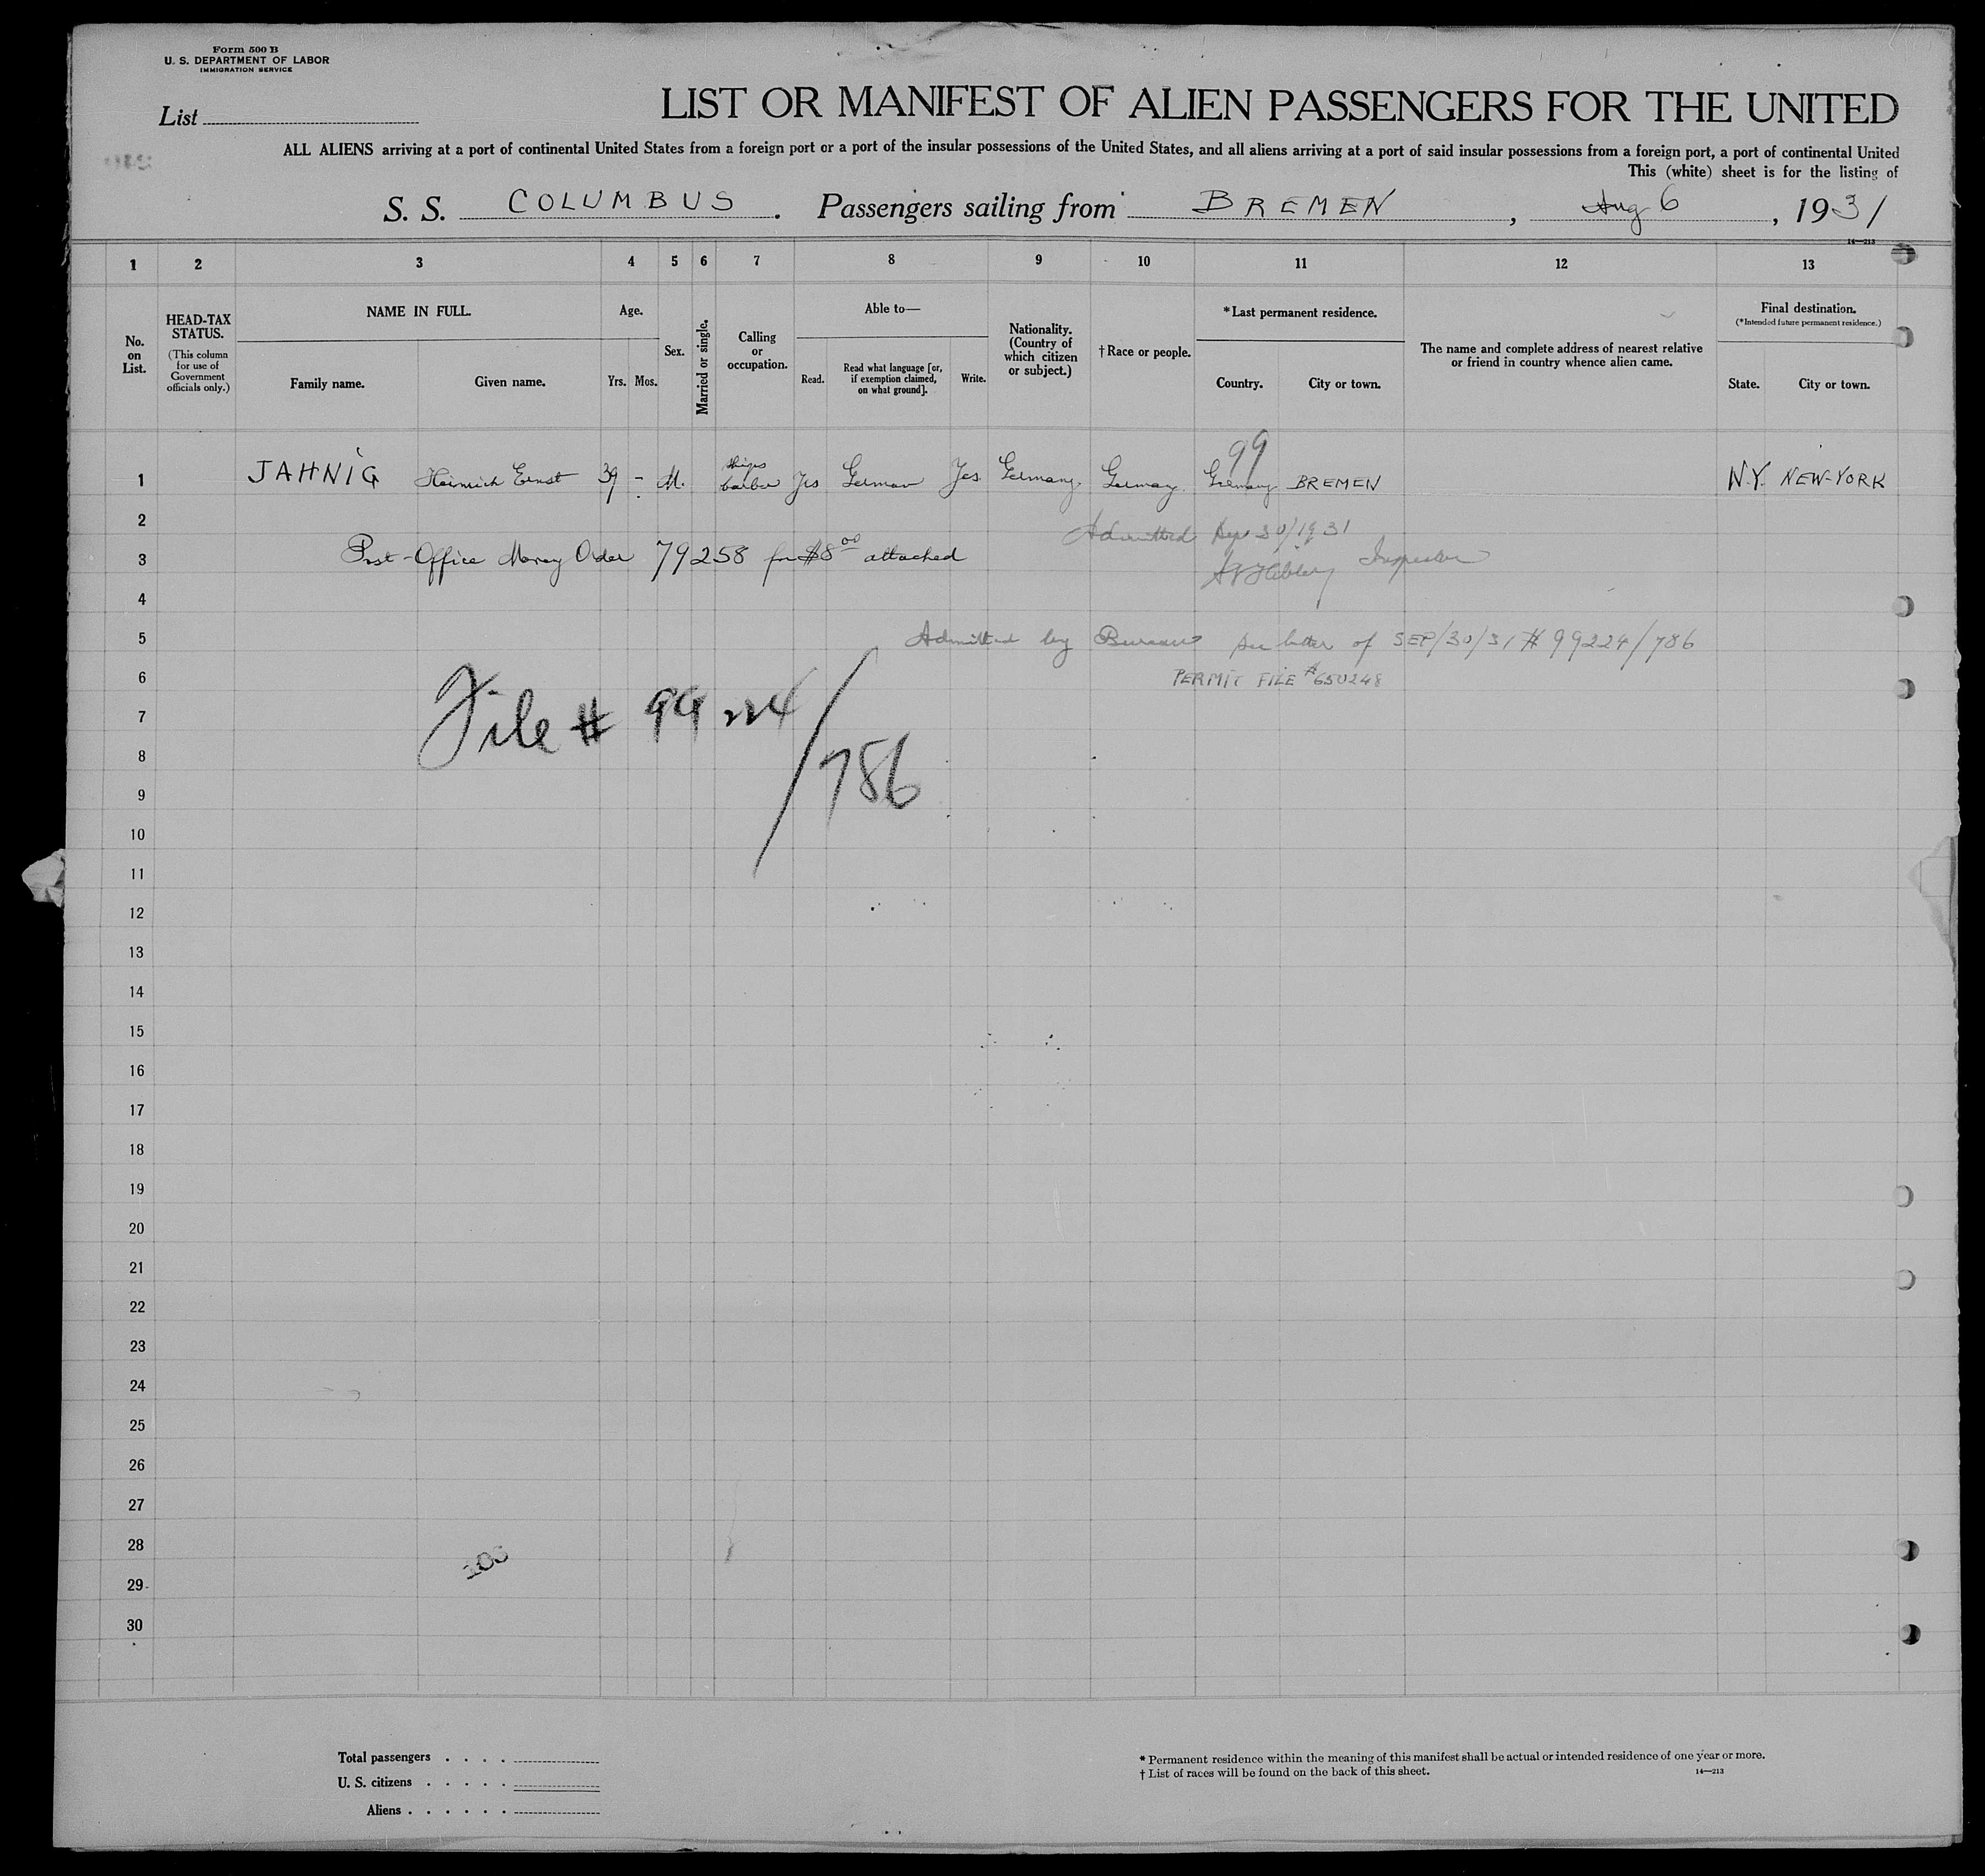 Form 500 B
U. S. DEPARTMENT OF LABOR
IMMIGRATION SERVICE
List
LIST OR MANIFEST OF ALIEN PASSENGERS FOR THE UNITED
ALL ALIENS arriving at a port of continental United States from a foreign port or a port of the insular possessions of the United States, and all aliens arriving at a port of said insular possessions from a foreign port, a port of continental United
This (white) sheet is for the listing of
S. S. COLUMBUS . Passengers sailing from BREMEN , Aug 6 , 1931
14—213
1 2 3 4 5 6 7 8 9 10 11 12 13
No. on List.
HEAD-TAX STATUS.
(This column for use of Government officials only.)
NAME IN FULL.
Family name. Given name.
Age.
Yrs. Mos.
Sex.
Married or single.
Calling or occupation.
Able to—
Read. Read what language [or, if exemption claimed, on what ground]. Write.
Nationality. (Country of which citizen or subject.)
†Race or people.
*Last permanent residence.
Country. City or town.
The name and complete address of nearest relative or friend in country whence alien came.
Final destination.
(*Intended future permanent residence.)
State. City or town.
99
1 JAHNIG Heinrich Ernst 39 - M. ships barber Yes German Yes Germany. Germany. Germany BREMEN N.Y. NEW-YORK
2 Admitted Sep 30/1931
3 Post-Office Money Order 79258 for $8 00 attached
Inspector
4
5 Admitted by Bureau per letter of SEP/30/31 # 99224/786
6 PERMIT FILE #650248
7 File # 99224/786
8
9
10
11
12
13
14
15
16
17
18
19
20
21
22
23
24
25
26
27
28
29
30
Total passengers . . . .
U. S. citizens . . . . .
Aliens . . . . . .
* Permanent residence within the meaning of this manifest shall be actual or intended residence of one year or more.
† List of races will be found on the back of this sheet.
14—213